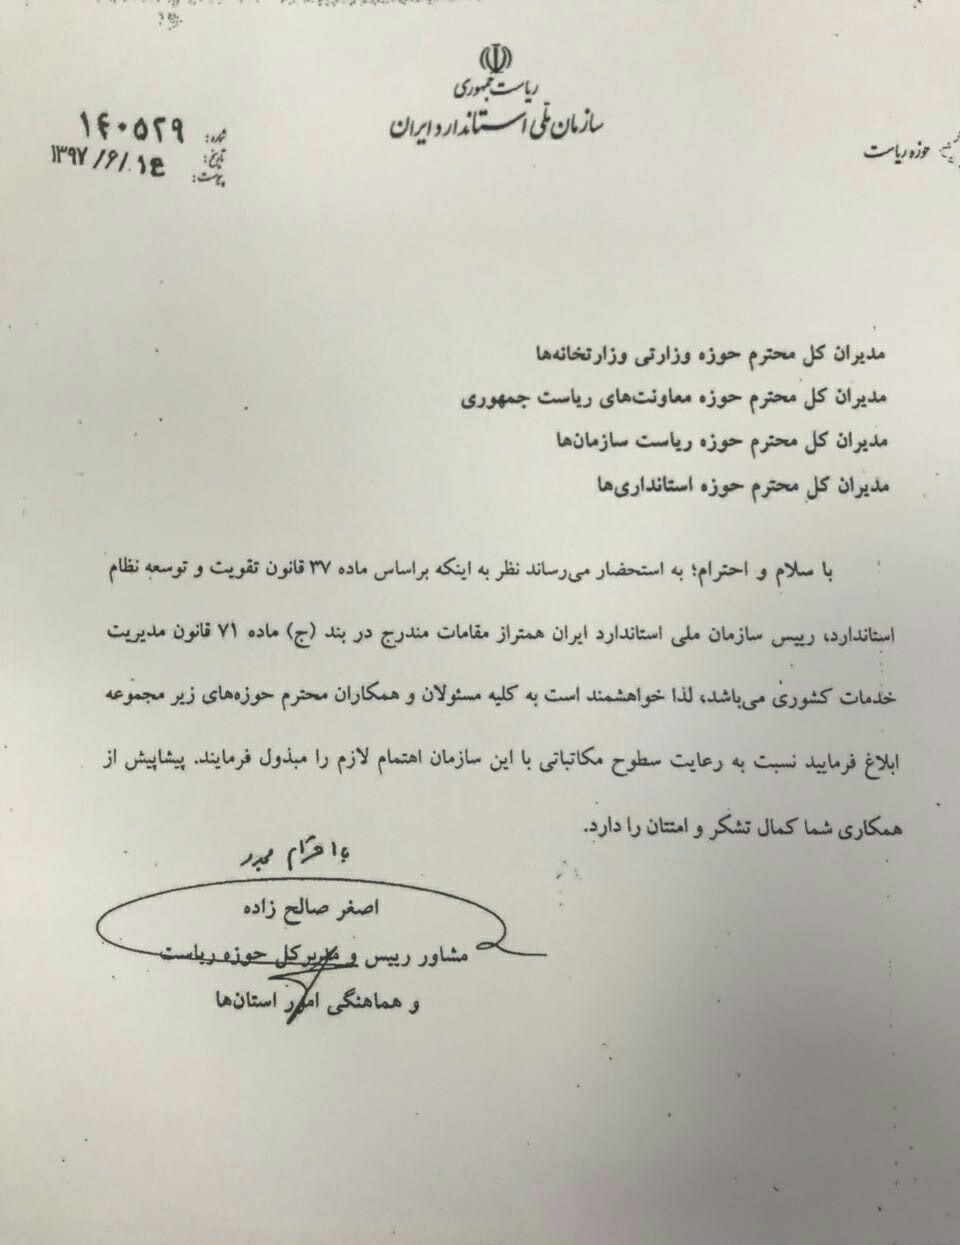 ریاست جمهوری
سازمان ملّی استاندارد ایران
حوزه ریاست
شماره: ۱۴۰۵۲۹
تاریخ: ۱۳۹۷/۶/۱۴
پیوست:
مدیران کل محترم حوزه وزارتی وزارتخانه‌ها
مدیران کل محترم حوزه معاونت‌های ریاست جمهوری
مدیران کل محترم حوزه ریاست سازمان‌ها
مدیران کل محترم حوزه استانداری‌ها
با سلام و احترام؛ به استحضار می‌رساند نظر به اینکه براساس ماده ۳۷ قانون تقویت و توسعه نظام
استاندارد، رییس سازمان ملی استاندارد ایران همتراز مقامات مندرج در بند (ج) ماده ۷۱ قانون مدیریت
خدمات کشوری می‌باشد، لذا خواهشمند است به کلیه مسئولان و همکاران محترم حوزه‌های زیر مجموعه
ابلاغ فرمایید نسبت به رعایت سطوح مکاتباتی با این سازمان اهتمام لازم را مبذول فرمایند. پیشاپیش از
همکاری شما کمال تشکر و امتنان را دارد.
با احترام مجدد
اصغر صالح زاده
مشاور رییس و مدیرکل حوزه ریاست
و هماهنگی امور استان‌ها